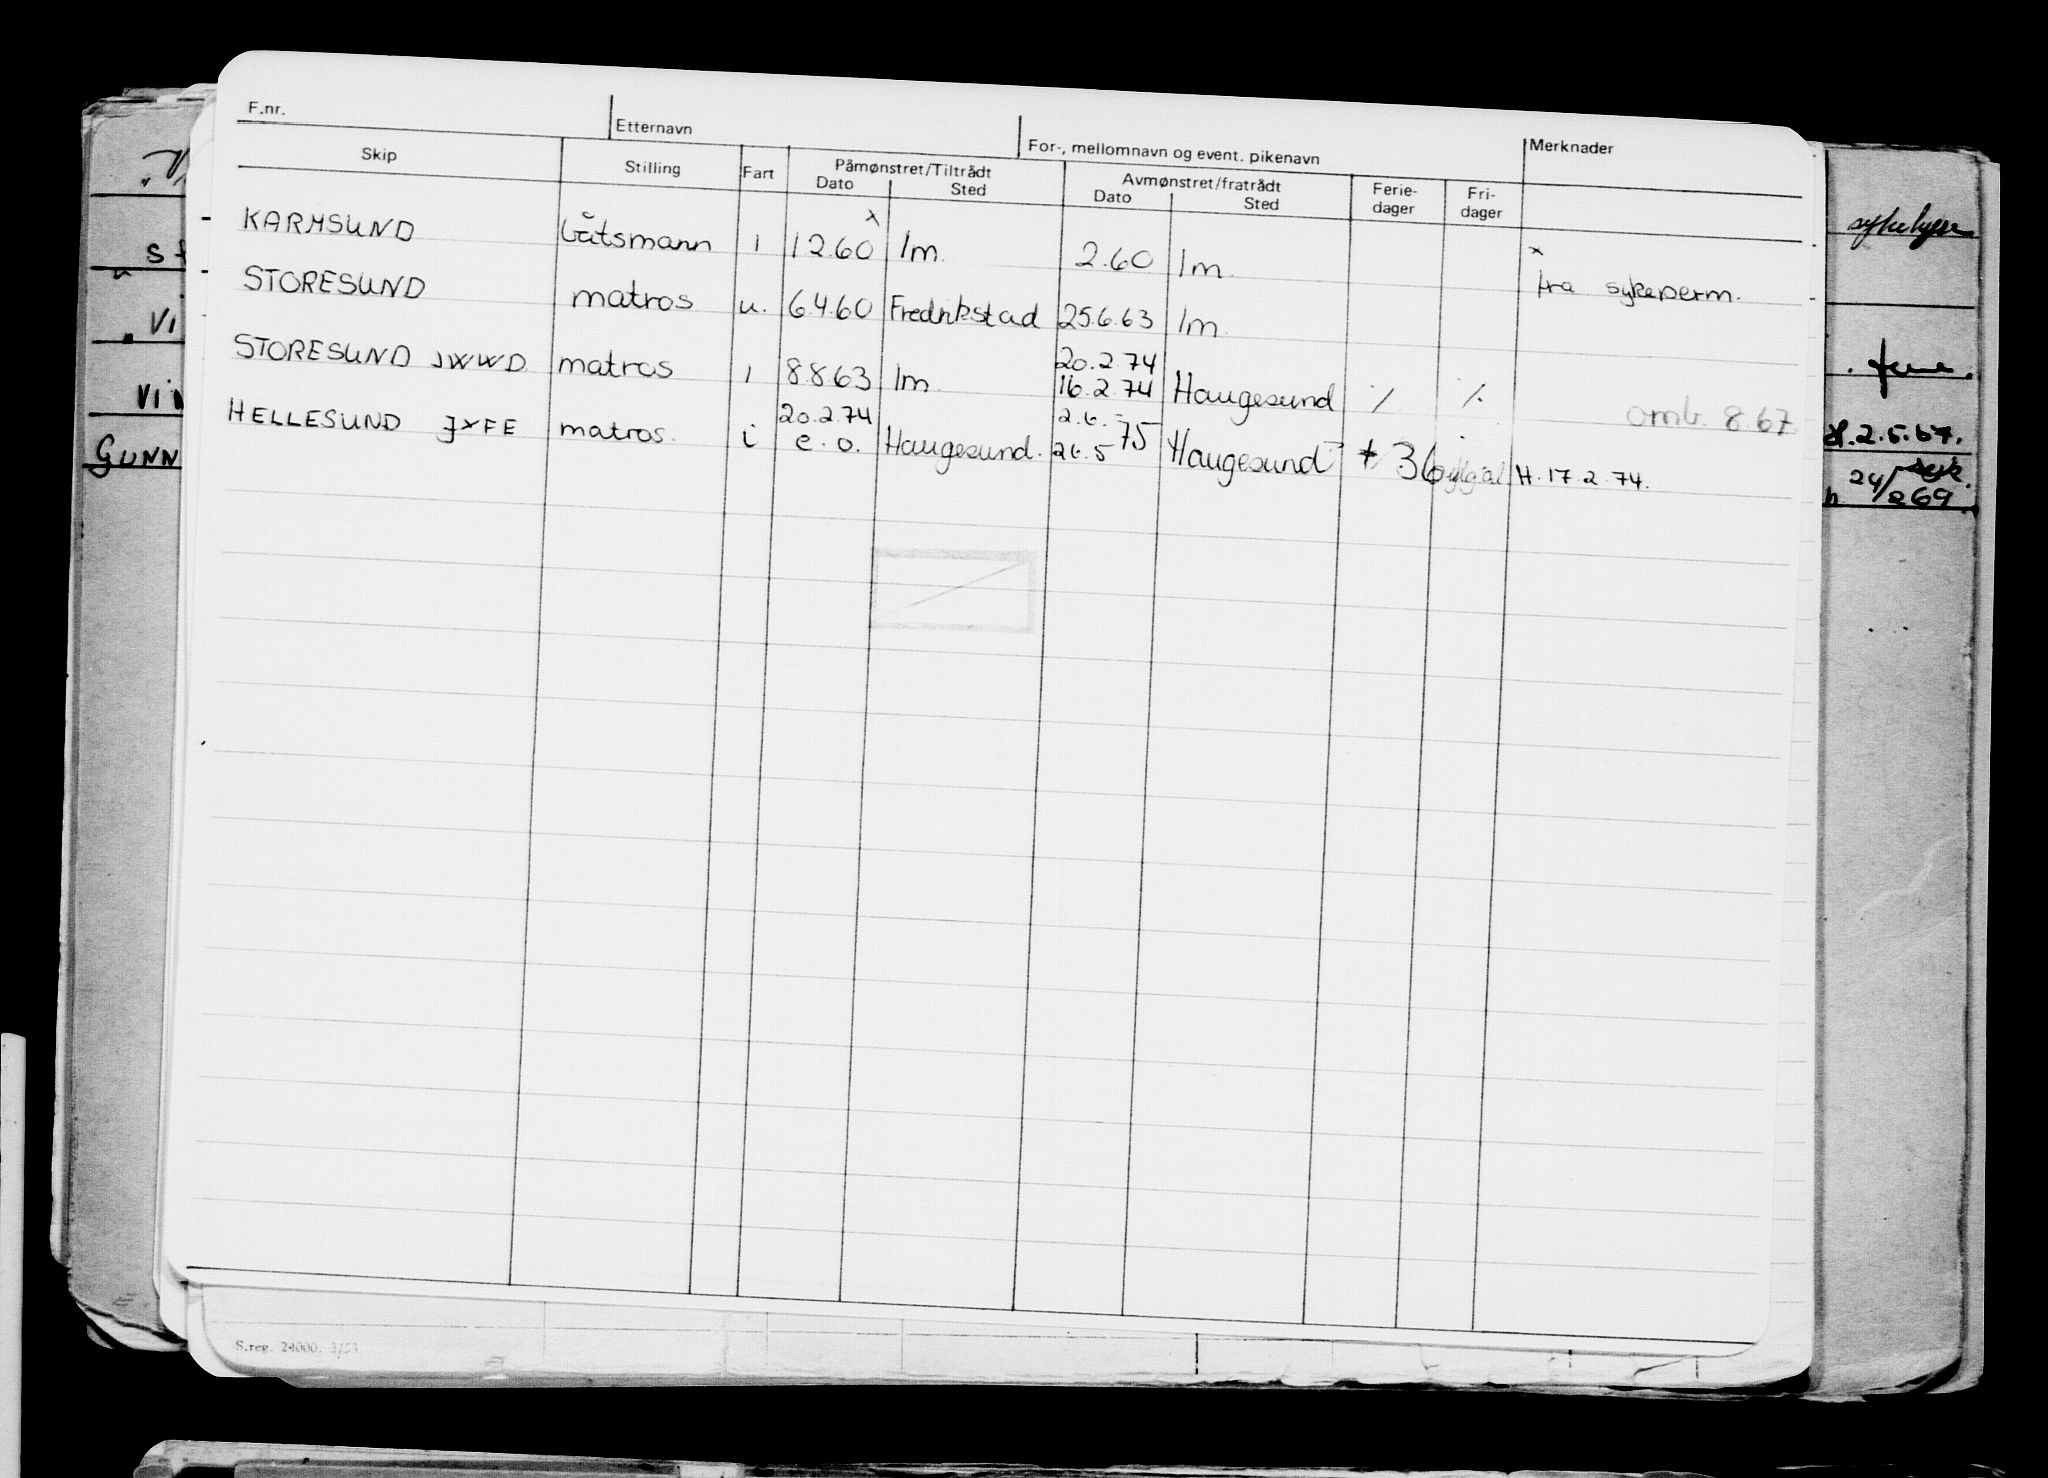 F.nr. Etternavn For-, mellomnavn og event. pikenavn Merknader
Skip Stilling Fart Påmønstret/Tiltrådt Avmønstret/fratrådt Ferie- Fri-
Dato Sted Dato Sted dager dager
x
KARMSUND båtsmann i 12.60 Im. 2.60 Im. x
fra sykeperm.
STORESUND matros u. 6.4.60 Fredrikstad 25.6.63 Im.
20.2.74
STORESUND JWWD matros i 8.8.63 Im. 16.2.74 Haugesund omb. 8.67
20.2.74 2.6.-
HELLESUND JXFE matros. i e.o. Haugesund. 26.5 75 Haugesund 36 H. 17.2.74.
GUNN
2.5.67.
24/269
S.reg. 24000. 3/53